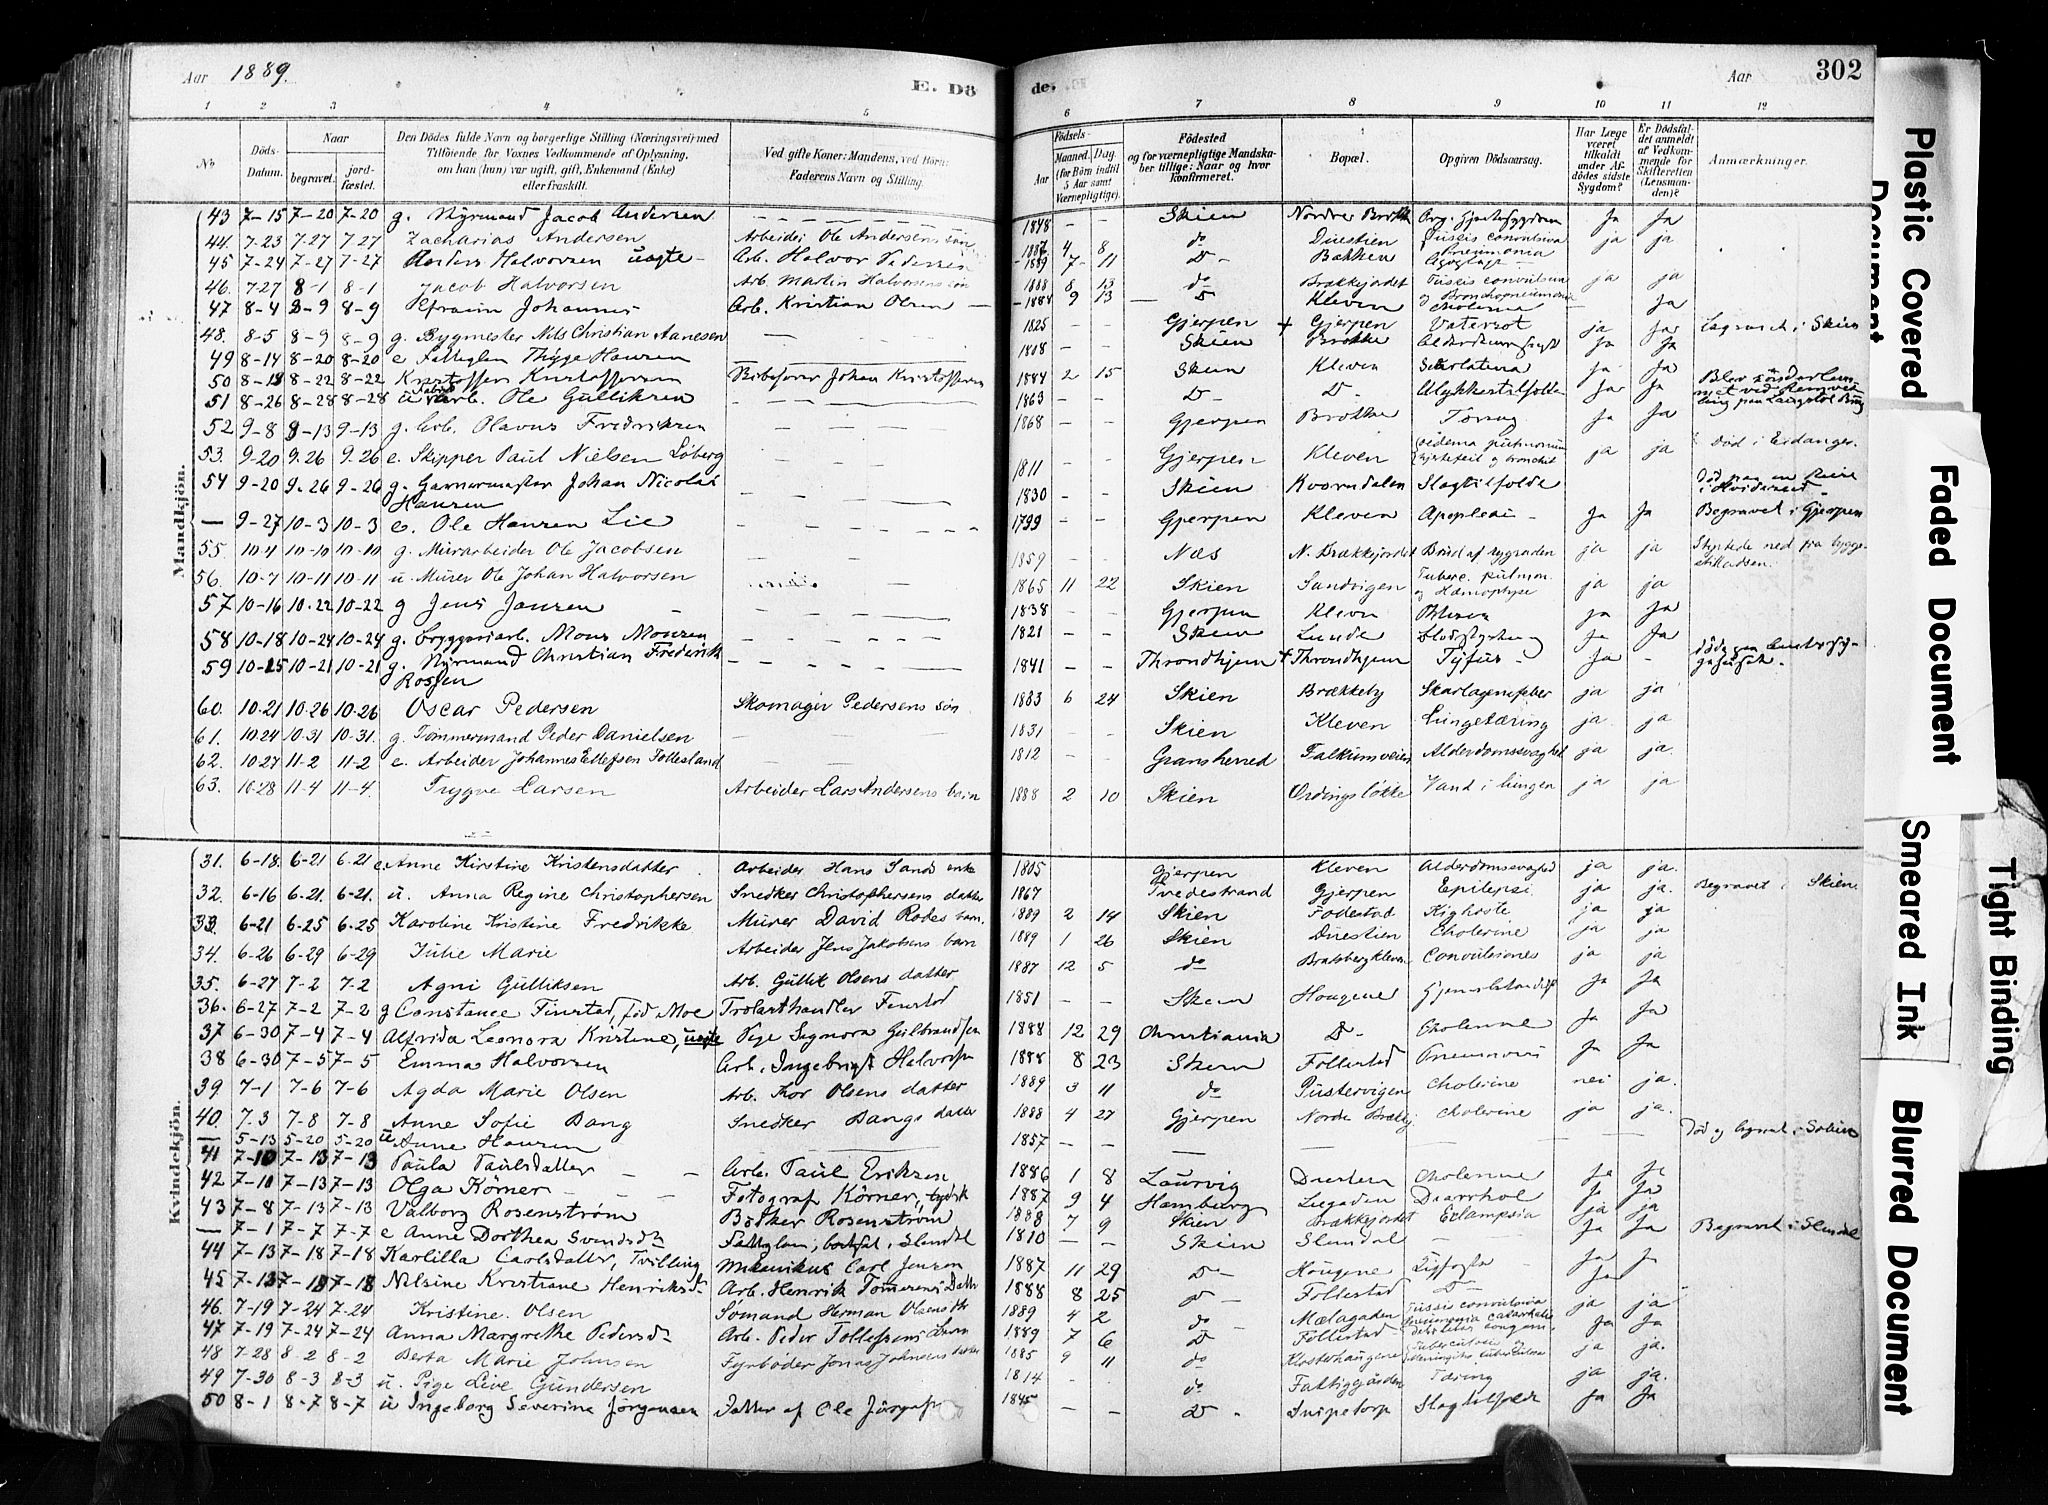 Aar 1889.
E. Dö
de.
Aar
302
1 2 3 4 5 6 7 8 9 10 11 12
No
Döds-Datum.
Naar
begravet.
jord-fæstet.
Den Dödes fulde Navn og borgerlige Stilling (Næringsvei) med Tilföiende for Voxnes Vedkommende af Oplysning, om han (hun) var ugift, gift, Enkemand (Enke) eller fraskilt.
Ved gifte Koner: Mandens, ved Börn: Faderens Navn og Stilling.
Födsels-
Aar
Maaned.
Dag.
(for Börn indtil 5 Aar samt Værnepligtige).
Födested og for værnepligtige Mandskaber tillige: Naar og hvor konfirmeret.
Bopæl.
Opgiven Dödsaarsag.
Har Læge været tilkaldt under Afdødes sidste Sygdom?
Er Dödsfaldet anmeldt af Vedkommende for Skifteretten (Lensmanden)?
Anmærkninger.
Mandkjön.
43 7-15 7-20 7-20 g. Styrmand Jacob Andersen 1848 - - Skien Nordre Brekke Org. Hjertesygdom Ja Ja
44. 7-23 7-27 7-27 Zacharias Andersen Arbeider Ole Andersens søn 1887 4 8 do Duestien Tussis convulsiva Pneumonia ja ja
45 7-24 7-27 7-27 Anders Halvorsen uægte Arb. Halvor Pedersen 1889 7 11 D- Bakken
46. 7-27 8-1 8-1 Jacob Halvorsen Arb. Martin Halvorsens søn 1888 8 13 do Brækkejordet Tussis convulsiva og Bronchopneumonia ja ja
47 8-4 8-9 8-9 Efraim Johannes Arb. Kristian Olsen 1884 9 13 D Kleven Cholerine Ja
48. 8-5 8-9 8-9 g. Bygmester Nils Christian Aanesen 1825 - - Gjerpen + Gjerpen Vatersot ja ja Begravet i Skien
49 8-14 8-20 8-20 e. Fattiglem Thyge Hansen 1808 - - Skien Brekke Alderdomssvaghed Ja Ja
50 8-19 8-22 8-22 Kristoffer Kristoffersen Birkefører Johan Kristoffersen 1884 2 15 Skien Kleven Scarlatina Ja Ja
51 8-26 8-28 8-28 u. Arb. Ole Gulliksen 1863 D- D- Ulykkestilfælde Ja Ja
52 9-8 9-13 9-13 g. Arb. Olavus Fredriksen 1868 - - Gjerpen Brekke Tæring Ja Ja
53. 9-20 9-26 9-26 e. Skipper Paul Nielsen Løberg 1811 - - Gjerpen Kleven oedema pulmonum hjertefeil og bronchit ja ja Død i Eidanger.
54 9-20 9-26 9-26 g. Garvermester Johan Nicolai Hansen 1830 - - Skien Kverndalen Slagtilfælde Død paa en Reise i Hvideseid.
— 9-27 10-3 10-3 e. Ole Hansen Lie 1799 - - Gjerpen Kleven Apoplexi Ja Ja Begravet i Gjerpen
55. 10-4 10-10 10-10 g. Murarbeider Ole Jacobsen 1859 - - Næs N. Brækkejordet Brud af rygraden ja ja Styrtede ned fra bygge-stilladsen.
56. 10-7 10-11 10-11 u. Murer Ole Johan Halvorsen 1865 11 22 Skien Sandvigen Tuberc. pulmon. og Hæmoptyse ja ja
57 10-16 10-22 10-22 g Jens Jansen 1838 - - Gjerpen Kleven ja Ja
58 10-18 10-24 10-24 g. Bryggeriarb. Mons Monsen 1821 - - Skien Lunde Blodstyrtning Ja Ja
59 10-15 10-21 10-21 g. Styrmand Christian Frederik Rossen 1841 - - Throndhjem + Throndhjem Tyfus Ja - døde paa
60. 10-21 10-26 10-26 Oscar Pedersen Skomager Pedersens søn 1883 6 24 Skien Brækkeby Skarlagensfeber ja ja
61. 10-24 10-31 10-31. g. Tømmermand Peder Danielsen 1831 - - Skien Kleven Lungetæring ja ja
62. 10-27 11-2 11-2 e. Arbeider Johannes Ellefsen Follestad 1812 - - Gransherred Falkumveien Alderdomssvaghed ja ja.
63. 10-28 11-4 11-4. Trygve Larsen Arbeider Lars Andersens barn 1888 2 10 Skien Ordingsløkke Vand i lungen ja ja
Kvindekjön.
31. 6-18. 6-21 6-21 e. Anne Kirstine Kristensdatter Arbeider Hans Sands enke 1805 Gjerpen Kleven Alderdomssvaghed ja ja.
32. 6-16 6-21. 6-21. u. Anna Regine Christophersen Snedker Christophersens datter 1867 Tvedestrand Gjerpen Epilepsi ja ja. Begravet i Skien.
33. 6-21 6-25 6-25 Karoline Kristine Fredrikke Murer David Rodes barn. 1889 2 14 Skien Follestad Kighoste ja ja
34. 6-26 6-29 6-29 Julie Marie Arbeider Jens Jakobsens barn 1889 1 26 Skien Duestien Cholerine ja ja
35. 6-27 7-2 7-2 Agni Gulliksen Arb. Gullik Olsens datter 1887 12 5 do Bratsbergkleven Convulsiones ja ja
36. 6-27 7-2 7-2 g Constance Finstad, fød Moe Trælasthandler Finstad 1851 - - Skien Hougene Ja Ja
37 6-30 7-4 7-4 Alfrida Leonora Kristine, uægte Pige Signora Gulbrandsen 1888 12 29 Christiania D- Cholerine Ja Ja
38 6-30 7-5 7-5 Emma Halvorsen Arb. Ingebrigt Halvorsen 1888 8 23 Skien Follestad Pneumoni Ja Ja
39 7-1 7-6 7-6 Agda Marie Olsen Arb. Kor Olsens datter 1889 3 11 do Pustervigen Cholerine nei ja.
40. 7-3 7-8 7-8 Anne Sofie Bang Snedker Bangs datter 1888 4 27 Gjerpen Nordre Brækkej Cholerine ja ja.
— 5-13 5-20 5-20 u Anne Hansen 1857 - - Død og begravet i Solum
41 7-10 7-13 7-13 Paula Paulsdatter Arb. Paul Eriksen 1886 1 8 Laurvig Duestien Cholerine Ja Ja
42 7-10 7-13 7-13 Olga Körner Fotograf Körner, tydsk 1887 9 4 Hamburg Liegaden Diarrhoe Ja Ja
43 7-8 7-13 7-13 Valborg Rosenstrøm Bødker Rosenstrøm 1888 7 9 Skien Brækkejordet Eclampsia ja ja
— 7-1 7-7 7-7 e Anne Dorthea Svendsdtr Fattiglem, bortsat i Slemdal 1810 - - Skien Slemdal Ja Ja Begravet i Slemdal
44 7-13 7-18 7-18 Karlilla Carlsdatter, Tvilling Mekanikus Carl Jensen 1887 11 29 D- Hougene Ja Ja
45 7-13 7-18 7-18 Nilsine Kristiane Henriksd. Arb. Henrik Tomesens Datter 1888 8 25 D- Follestad D- Ja
46. 7-19 7-24 7-24 Kristine Olsen Sømand Herman Olsens dtr 1889 4 2 do Mælagaden Tussis convulsiva pneumonia catarrhalis ja ja
47 7-19 7-24 7-24 Anna Margrethe Pedersd. Arb. Peder Tollefsens barn 1889 7 6 D Follestad debilitas congeni- Ja Ja
48 7-28 8-2 8-2 Berta Marie Johnsen Fyrbøder Jonas Johnsens datter 1885 9 11 do Klosterhaugene Meningitis tuberculosa ja ja.
49 7-30 8-3 8-3 u. Pige Live Gundersen 1814 - - do Fattiggården Tæring ja ja.
50 8-1 8-7 8-7 u Ingeborg Severine Jörgensen Datter af Ole Jörgensen 1845 - - D Snipetorp Slagtilfælde Ja Ja
Plastic Covered Document
Faded Document
Tight Binding
Smeared Ink
Blurred Document